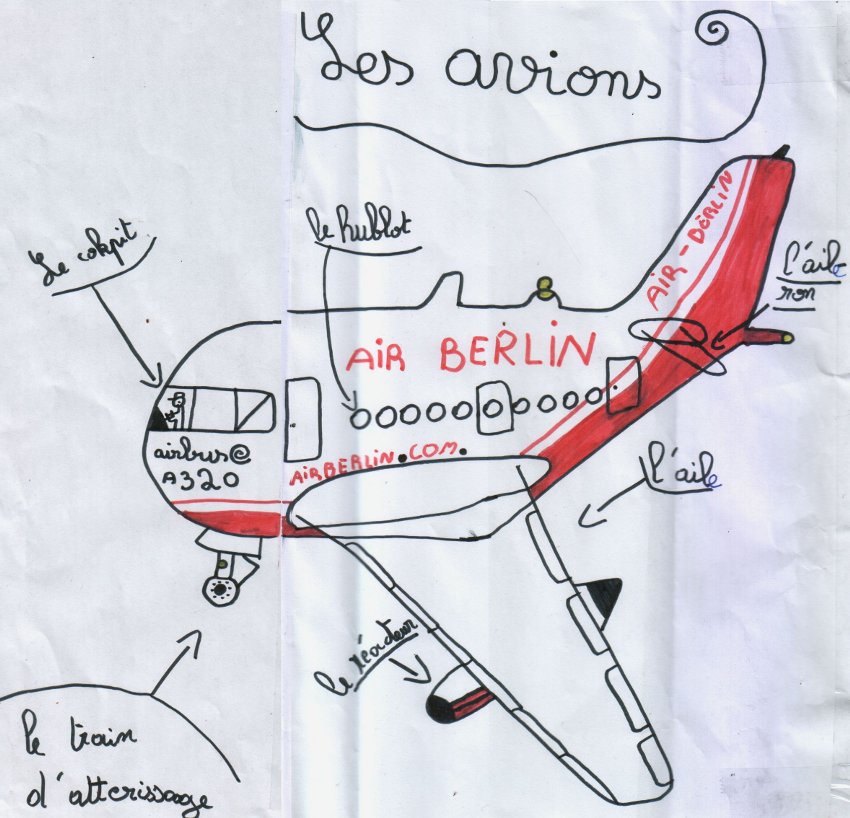 Les avions
AIR-BERLIN
le hublot
Le cokpit
l'aile
ron
AIR BERLIN
airbus@
A320
AIRBERLIN.COM.
l'aile
le réacteur
le train
d'atterissage